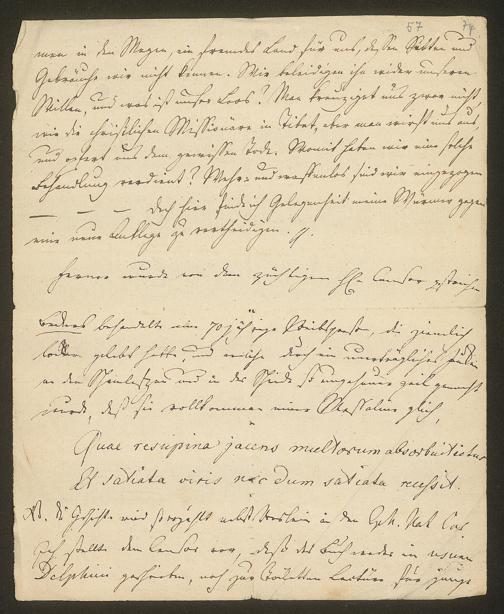 57 74
men in den Magen, ein fremdes Land für uns, dessen Sitten und
Gebräuche wir nicht kennen. Wir beleidigen ihn wider unseren
Willen, und was ist unser Loos? Man kreuziget uns zwar nicht,
wie die christlichen Missionäre in Tibet, aber man wirft uns aus
und opfert uns dem gewissen Tode. Womit haben wir eine solche
Behandlung verdient? Wehr- und waffenlos sind wir eingezogen
— — — Doch hier find ich Gelegenheit meine Würmer gegen
eine neue Anklage zu vertheidigen.
Ferner wurde von dem züchtigen H. Censor gestrichen
behandelte eine 70 jährige Weibsperson, die ziemlich
gelebt hatte, und welche durch ein unerträgliches
an den Schamlefzen und in der Scheide so ungeheuer geil gemacht
wurde, daß sie vollkommen einer Messalina glich,
Quae resupina jacens multorum absorbuit ictus
Et satiata viris nec dum satiata recessit.
NB. die Geschichte wird so erzählt nebst Verslein in den Eph. Nat. Cur.
Ich stellte dem Censor vor, daß das Buch weder in usum
Delphini geschrieben, noch zur Toiletten Lectüre für junge